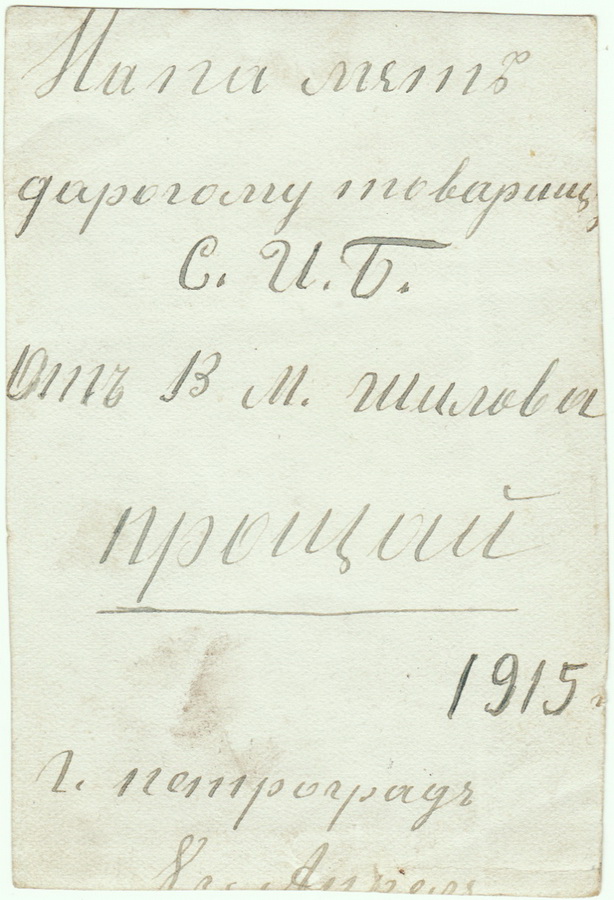 На па мять
дарогому товарищ
С. И. Б.
Отъ В М. Шилова
прощай
1915 г
г. петроградъ
Апрел